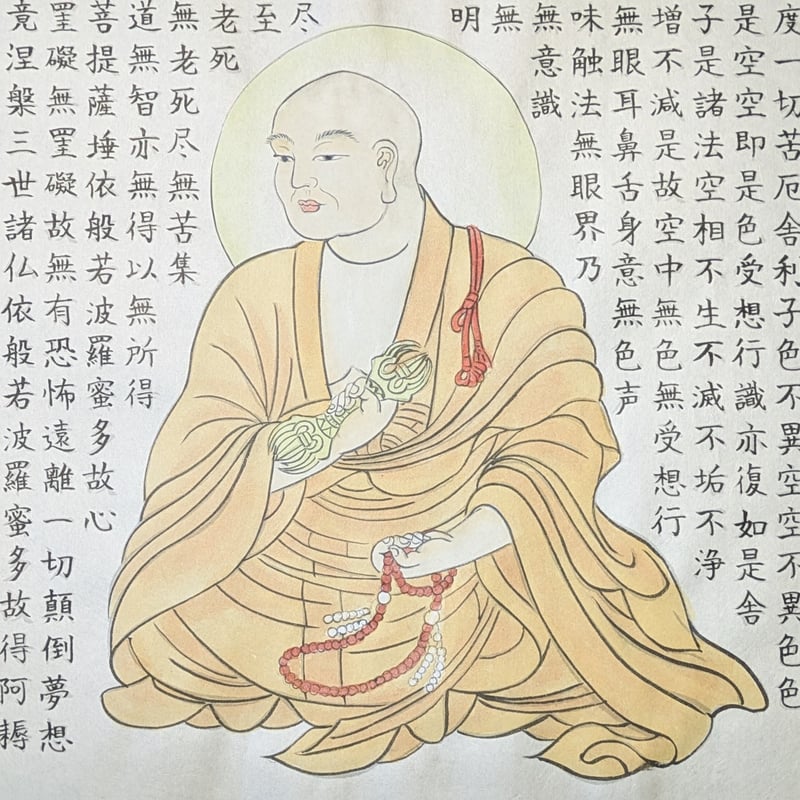 度一切苦厄舎利子色不異空空不異色色
是空空即是色受想行識亦復如是舎
子是諸法空相不生不滅不垢不浄
増不減是故空中無色無受想行
無眼耳鼻舌身意無色声
味触法無眼界乃
無意識
無
明
尽
至
老死
無老死尽無苦集
道無智亦無得以無所得
菩提薩埵依般若波羅蜜多故心
罣礙無罣礙故無有恐怖遠離一切顛倒夢想
竟涅槃三世諸仏依般若波羅蜜多故得阿耨